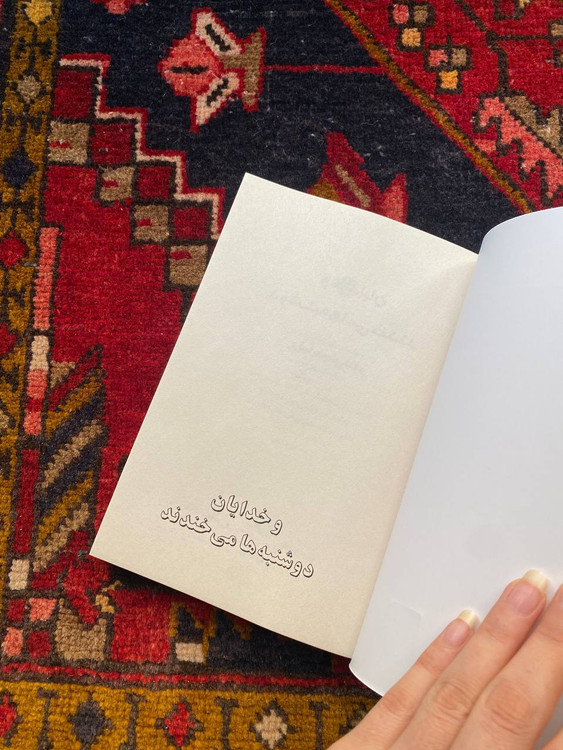 و خدایان
دوشنبه‌ها می‌خندند